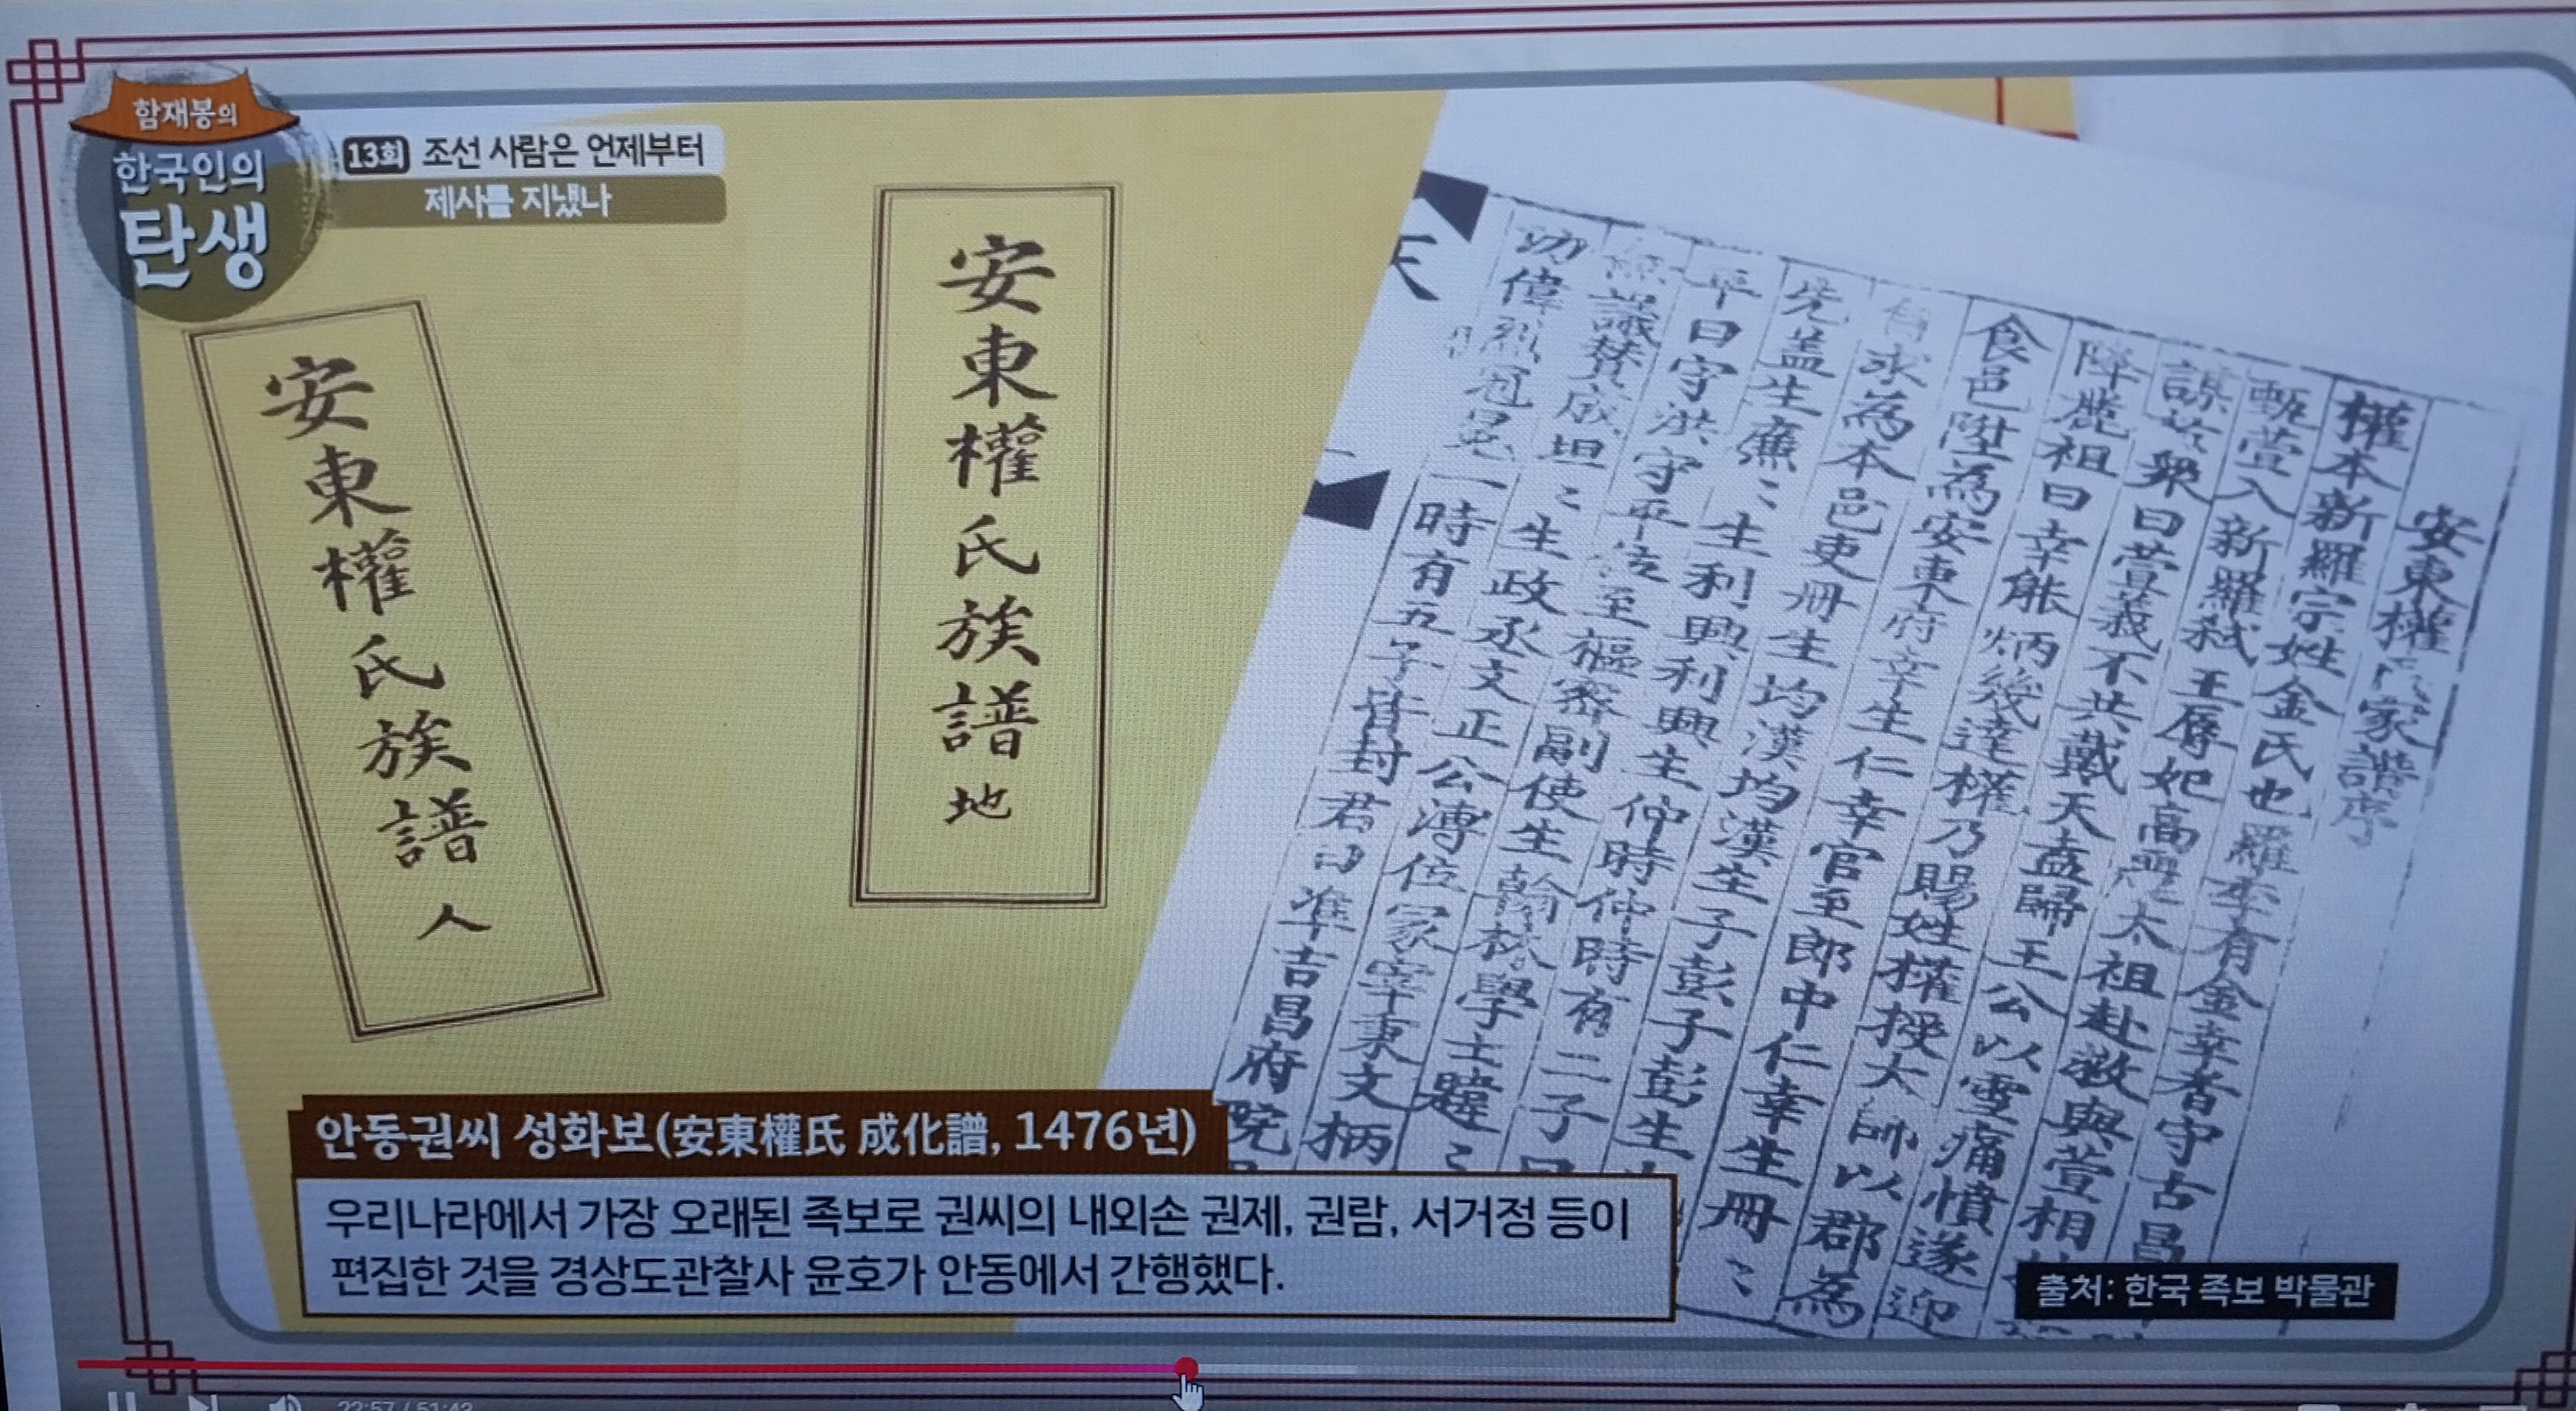 함재봉의
한국인의
탄생
13회 조선 사람은 언제부터
제사를 지냈나
安東權氏族譜 人
安東權氏族譜 地
安東權氏家譜序
權本新羅宗姓金氏也羅季有金幸者守古昌
甄萱入新羅弑王辱妃高麗太祖赴救與萱相
謀於衆曰萱義不共戴天盍歸王公以雪痛憤遂迎
降麗祖曰幸能炳幾達權乃賜姓權授大師以郡為
食邑陞為安東府幸生仁幸官至郎中仁幸生冊〻
自求為本邑吏冊生均漢均漢生子彭子彭生
先盖生廉〻生利興利興生仲時仲時有二子曰
平曰守洪守平位至樞密副使生翰林學士韙〻
議賛成坦〻生政丞文正公溥位冢宰秉文柄
功偉烈冠冕一時有五子皆封君曰準吉昌府院
안동권씨 성화보(安東權氏 成化譜, 1476년)
우리나라에서 가장 오래된 족보로 권씨의 내외손 권제, 권람, 서거정 등이
편집한 것을 경상도관찰사 윤호가 안동에서 간행했다.
출처: 한국 족보 박물관
22:57 / 51:43